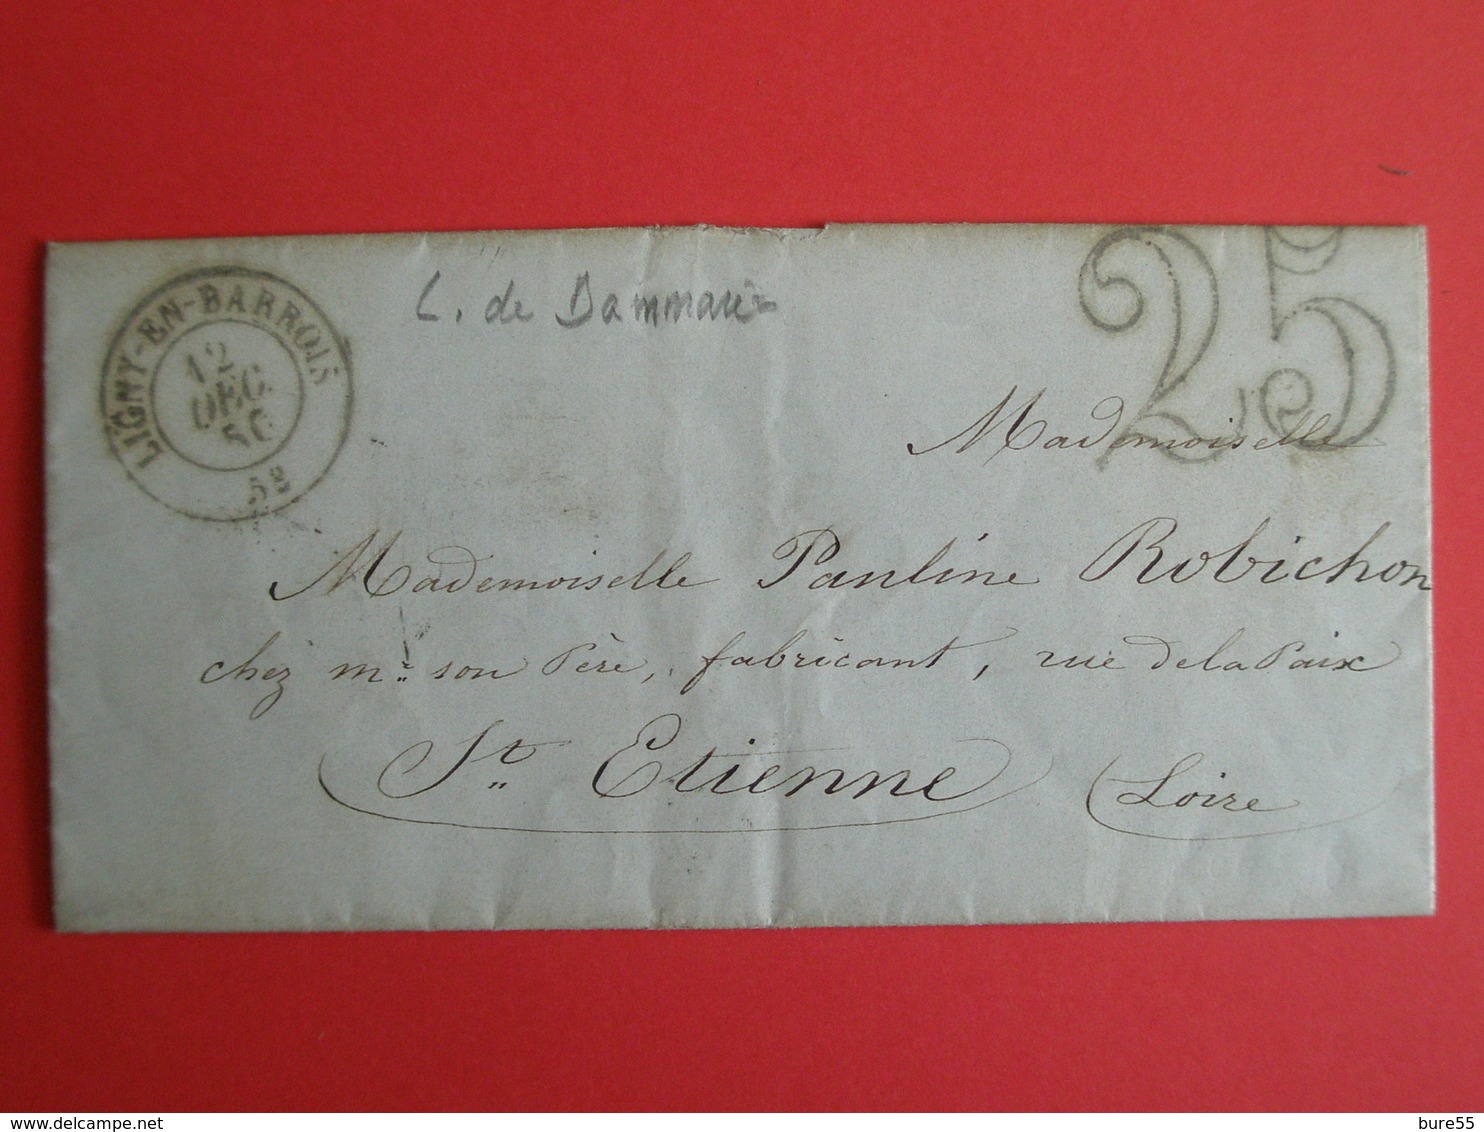 LIGNY-EN-BARROIS
12
DEC.
50
52
L. de Dammarie
25
Mademoiselle
Mademoiselle Pauline Robichon
chez mr. son Père, fabricant, rue de la Paix
St. Etienne (Loire
bure55